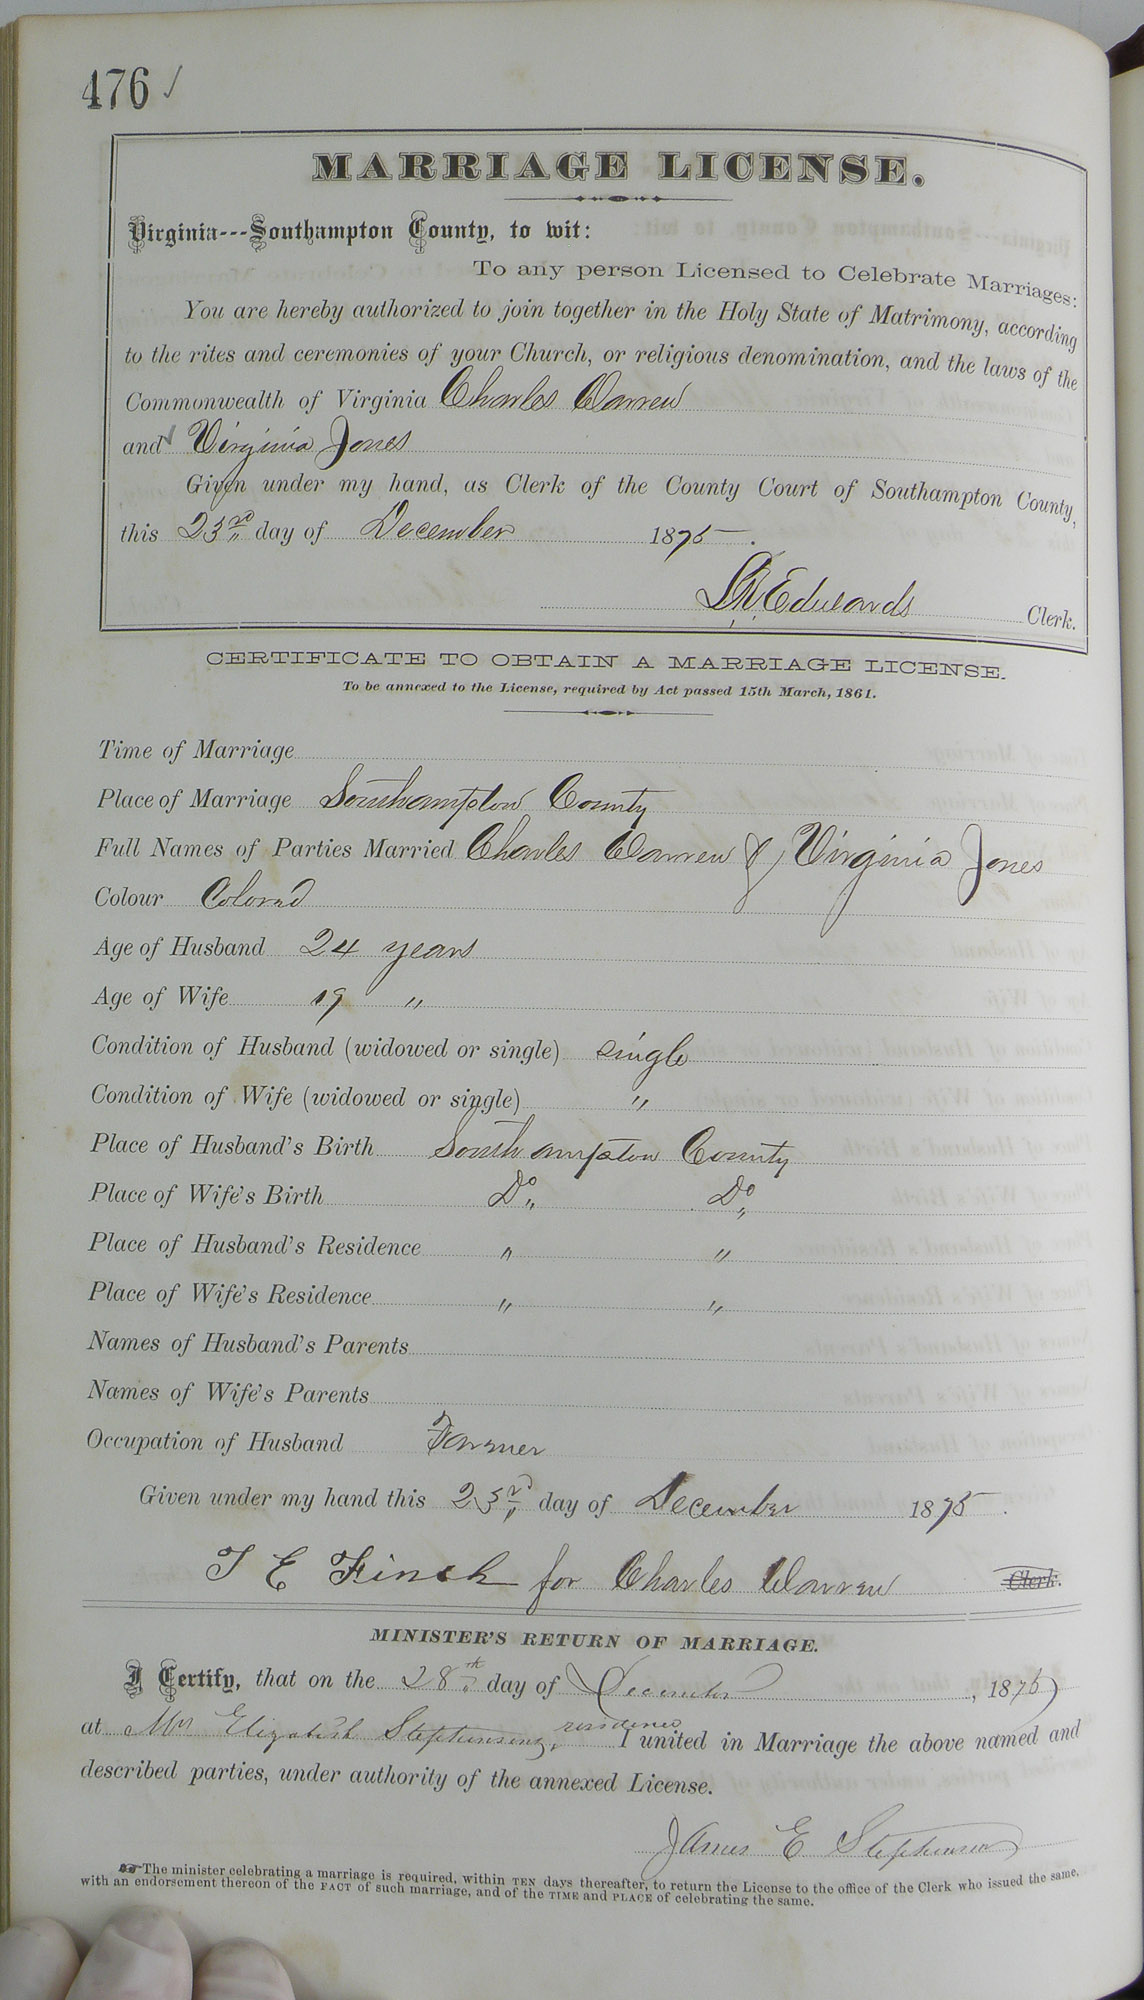 476 ✓
MARRIAGE LICENSE.
Virginia---Southampton County, to wit:
To any person Licensed to Celebrate Marriages:
You are hereby authorized to join together in the Holy State of Matrimony, according
to the rites and ceremonies of your Church, or religious denomination, and the laws of the
Commonwealth of Virginia Charles Warren
and Virginia Jones
Given under my hand, as Clerk of the County Court of Southampton County,
this 23rd day of December 1875.
LR Edwards Clerk.
CERTIFICATE TO OBTAIN A MARRIAGE LICENSE.
To be annexed to the License, required by Act passed 15th March, 1861.
Time of Marriage
Place of Marriage Southampton County
Full Names of Parties Married Charles Warren & Virginia Jones
Colour Colored
Age of Husband 24 years
Age of Wife 19 "
Condition of Husband (widowed or single) single
Condition of Wife (widowed or single) "
Place of Husband's Birth Southampton County
Place of Wife's Birth Do " Do "
Place of Husband's Residence " "
Place of Wife's Residence " "
Names of Husband's Parents
Names of Wife's Parents
Occupation of Husband Farmer
Given under my hand this 23rd day of December 1875.
T E Finch for Charles Warren Clerk.
MINISTER'S RETURN OF MARRIAGE.
I Certify, that on the 28th day of December, 1875
at Mrs Elizabeth Stephensons, residence I united in Marriage the above named and
described parties, under authority of the annexed License.
James E Stephenson
☞The minister celebrating a marriage is required, within TEN days thereafter, to return the License to the office of the Clerk who issued the same,
with an endorsement thereon of the FACT of such marriage, and of the TIME and PLACE of celebrating the same.